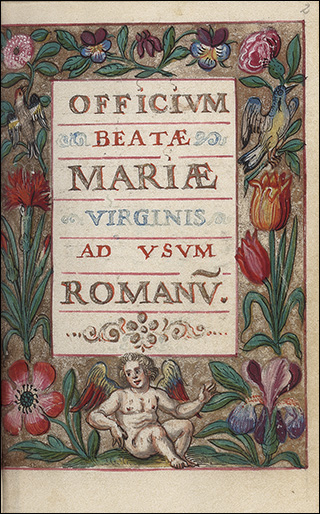 2
OFFICIVM
BEATÆ
MARIÆ
VIRGINIS
AD VSVM
ROMANṼ.